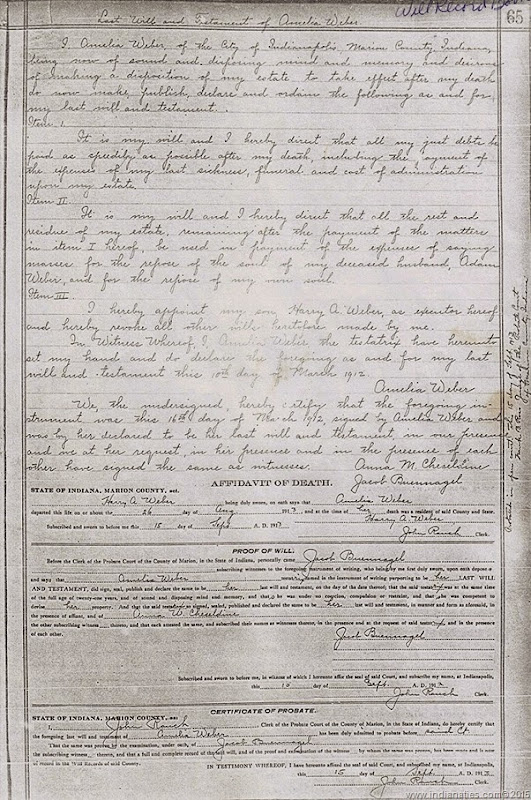 Will Record
65
Last Will and Testament of Amelia Weber.
I Amelia Weber, of the City of Indianapolis, Marion County, Indiana,
being now of sound and disposing mind and memory and desirous
of making a disposition of my estate to take effect after my death
do now make, publish, declare and ordain the following as and for
my last will and testament.
Item I.
It is my will and I hereby direct that all my just debts be
paid as speedily as possible after my death, including the payment of
the expenses of my last sickness, funeral and cost of administration
upon my estate.
Item II.
It is my will and I hereby direct that all the rest and
residue of my estate, remaining after the payment of the matters
in item I hereof, be used in payment of the expenses of saying
masses for the repose of the soul of my deceased husband, Adam
Weber, and for the repose of my own soul.
Item III.
I hereby appoint my son, Harry A. Weber, as executor hereof
and hereby revoke all other wills heretofore made by me.
In Witness Whereof, I, Amelia Weber the testatrix have hereunto
set my hand and do declare the foregoing as and for my last
will and testament this 16th day of March 1912.
Amelia Weber
We, the undersigned, hereby certify that the foregoing in-
strument was this 16th day of March 1912, signed by Amelia Weber and
was by her declared to be her last will and testament, in our presence
and we at her request, in her presence and in the presence of each
other have signed the same as witnesses.
Anna M. Cheseldine
Jacob Buennagel
AFFIDAVIT OF DEATH.
STATE OF INDIANA, MARION COUNTY, sct.
Harry A. Weber being duly sworn, on oath says that Amelia Weber
departed this life on or about the 26 day of Aug 191 and at the time of her death was a resident of said County and State.
Harry A. Weber
Subscribed and sworn to before me this 15 day of Sept A. D. 191
John Rauch Clerk.
PROOF OF WILL.
Before the Clerk of the Probate Court of the County of Marion, in the State of Indiana, personally came Jacob Buennagel
subscribing witnesses to the foregoing instrument of writing, who being by me first duly sworn, upon their depose and
says that Amelia Weber named in the instrument of writing purporting to be her LAST WILL
AND TESTAMENT, did sign, seal, publish and declare the same to be her last will and testament, on the day of the date thereof; that the said was at the same time
of the full age of twenty-one years, and of sound and disposing mind and memory, and that he was under no coercion, compulsion or restraint, and that he was competent to
devise her property. And that the said testator so signed, sealed, published and declared the same to be her last will and testament, in manner and form as aforesaid, in
the presence of affiant, and of Anna M. Cheseldine
the other subscribing witness thereto, and that each attested the same, and subscribed their names as witnesses thereto, in the presence and at the request of said and in the presence
of each other.
Jacob Buennagel
Subscribed and sworn to before me, in witness of which I hereunto affix the seal of said Court, and subscribe my name, at Indianapolis,
this 15 day of Sept. A. D. 191
John Rauch Clerk.
CERTIFICATE OF PROBATE.
STATE OF INDIANA, MARION COUNTY, sct:
I, John Rauch Clerk of the Probate Court of the County of Marion, in the State of Indiana, do hereby certify that
the foregoing last will and testament of Amelia Weber has been duly admitted to probate before said Ct
That the same was proved by the examination, under oath, of Jacob Buennagel
the subscribing witness thereto, and that a full and complete record of the will, and of the proof and examination of the witness by whom the same was proven, has been made and is now
of record in the Will Records of said County.
IN TESTIMONY WHEREOF, I have affixed the seal of said Court, and subscribed my name, at Indianapolis,
this 15 day of Sept. 191
John Rauch Clerk.
www.indianaties.com©